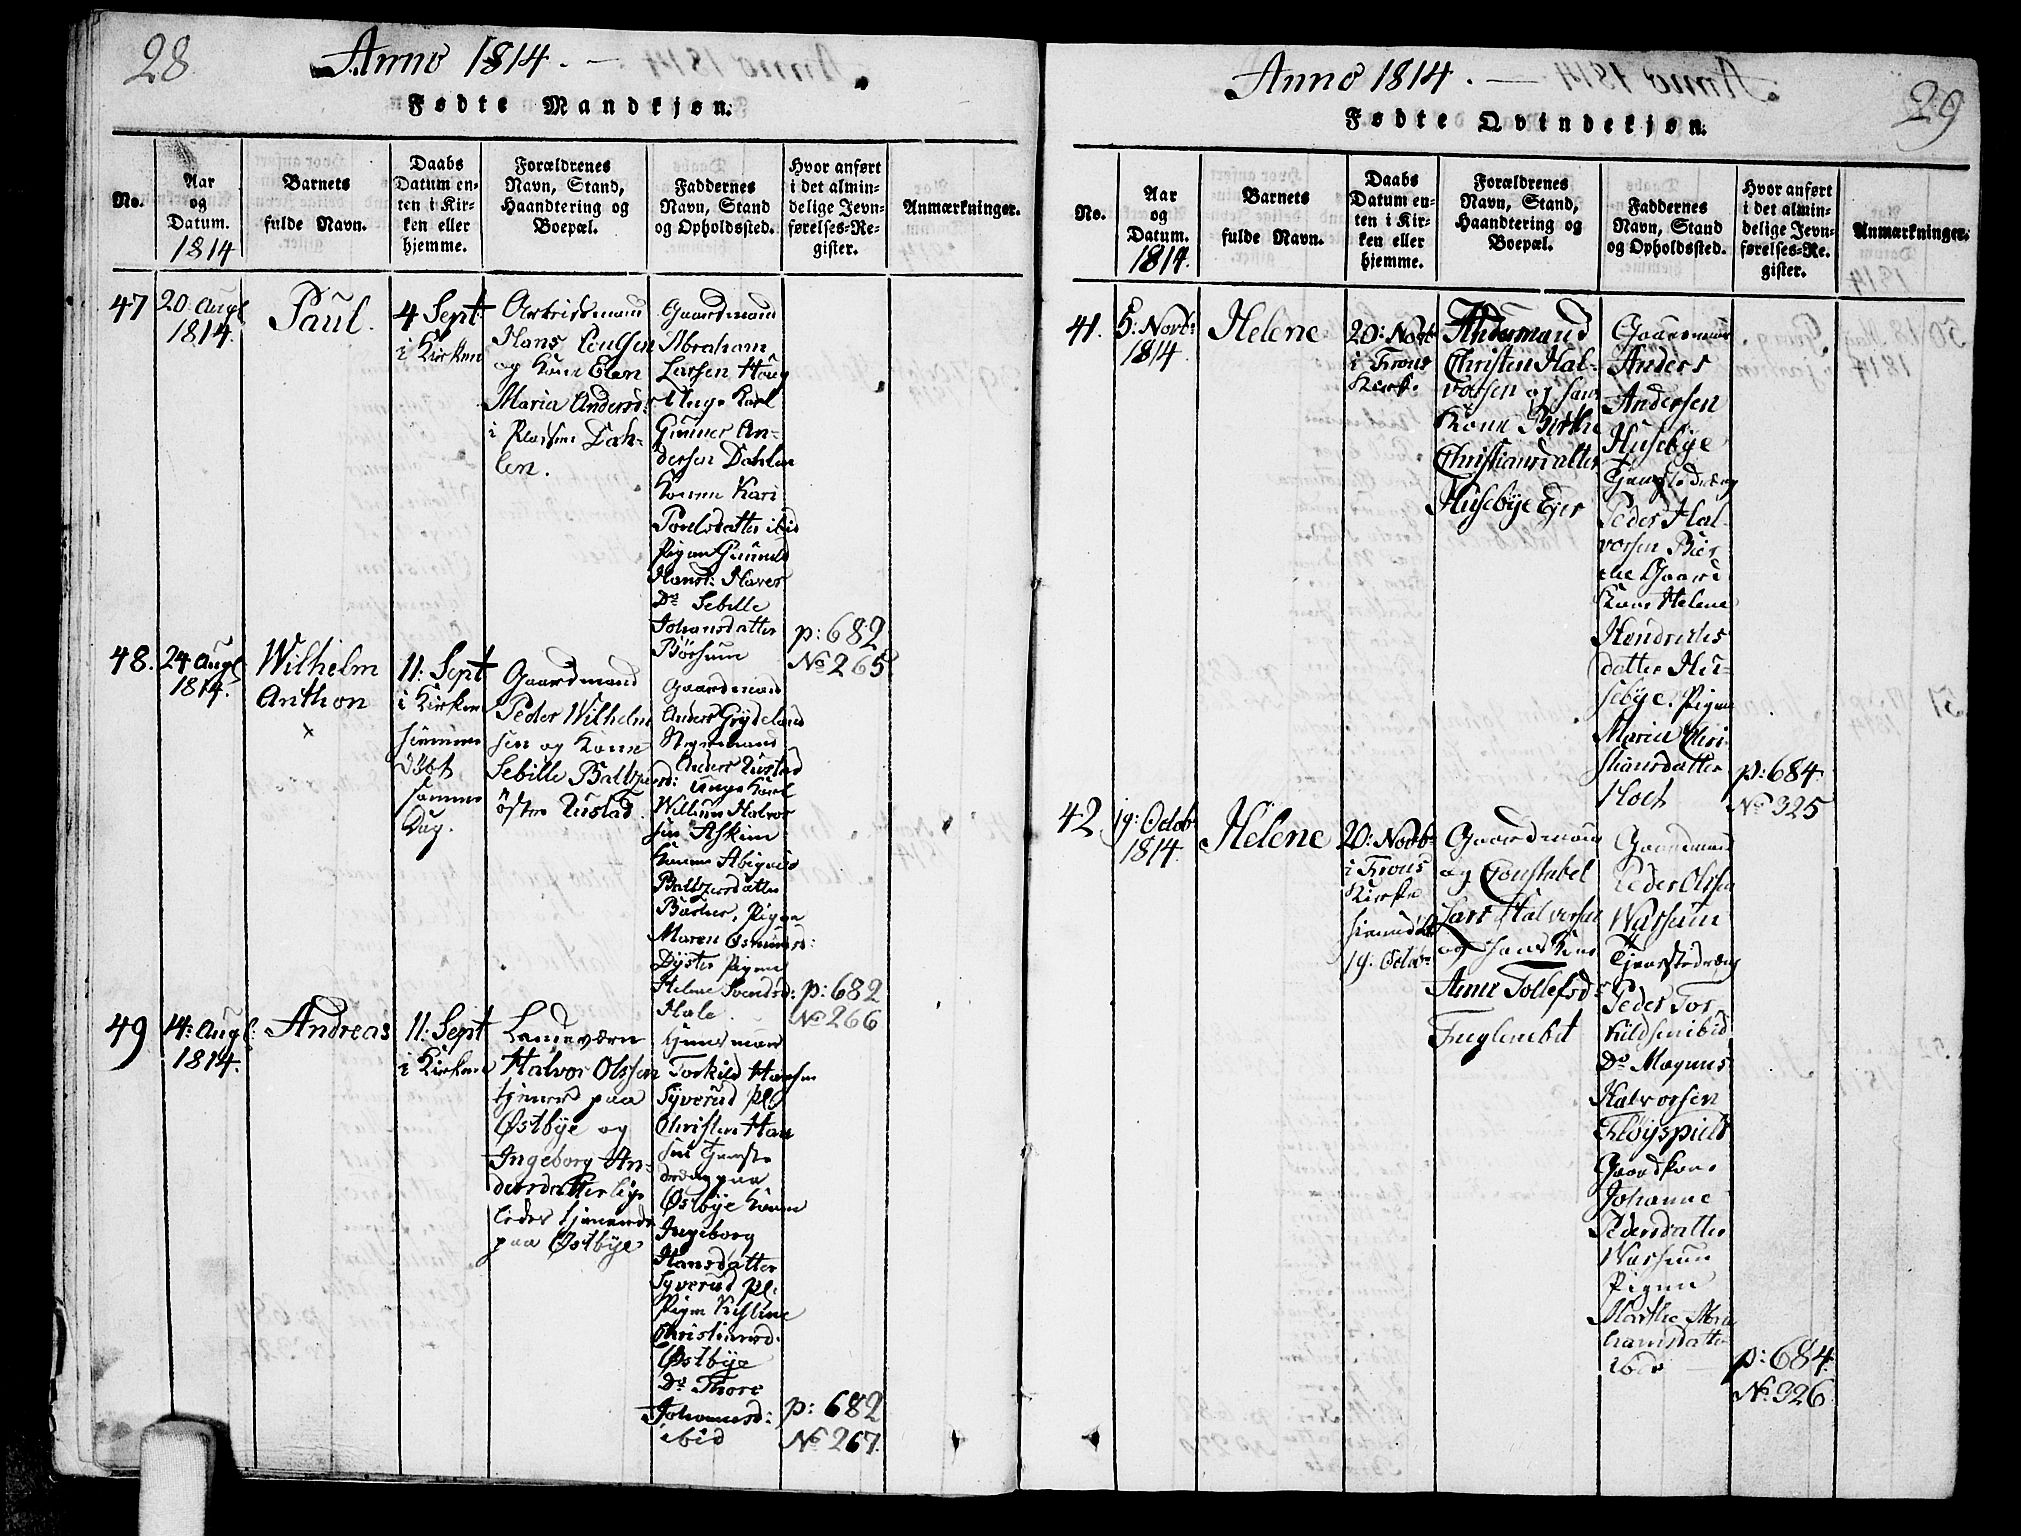 28
Anno 1814. –
Fødte Mandkjøn.
No.
Aar
og
Datum.
1814
Barnets
fulde Navn.
Daabs
Datum en-
ten i Kir-
ken eller
hjemme.
Forældrenes
Navn, Stand,
Haandtering og
Boepæl.
Faddernes
Navn, Stand
og Opholdssted.
Hvor anført
i det almin-
delige Jevn-
førelses-Re-
gister.
Anmærkninger.
47
20 Augl
1814.
Paul.
4 Sept
i Kirken
Hans
og Kone Elen
Maria Andersd:
i Pladsen Dah-
len.
Gaardmand
Abraham
Larsen Houg
Unge Karl
Gunner An-
dersen Dahlen
Konen Kari
Povelsdatter ibid
Pigen Gunnild
Hansd:
Do Sebille
Johansdatter
Børsum
p: 682
No 265
48.
24 Augl
1814.
Wilhelm
Anthon
11: Sept
i Kirken
hiemme
døbt
samme
Dag.
Gaardmand
Peder Wilhelm
sen og Kone
Sebille Baltzer
Rustad
Gaardmand
Anders Grydeland
Anders Rustad
Unge Karl
Willum Halvor
sen Askim
Konen Abigael
Baltzersdatter
Pigen
Maren
Dyster Pigen
Helene Svendsd:
p: 682
No 266
49
14: Augl:
1814.
Andreas
11: Sept
i Kirken
Landeværn
Halvor Olssen
tjener paa
Østbye og
Ingeborg An-
dersdatter lige
ledes tjenende
paa Østbye
Huusmand
Torkild Hansen
Syverud Pl:
Christen Han
sen Tjeneste
dreng paa
Østbye Konen
Ingeborg
Hansdatter
Syverud Pl:
Pigen
Christiansd:
Østbye
Do Thore
Johannesd:
ibid
p: 682
No 267.
Anno 1814. —
29
Fødte Qvindekjøn.
No.
Aar
og
Datum.
1814.
Barnets
fulde Navn.
Daabs
Datum en-
ten i Kir-
ken eller
hjemme.
Forældrenes
Navn, Stand,
Haandtering og
Boepæl.
Faddernes
Navn, Stand
og Opholdssted.
Hvor anført
i det almin-
delige Jevn-
førelses-Re-
gister.
Anmærkninger.
41.
5: Novb:
1814.
Helene
20: Novb
i Frons
Kirke
Christen Hal-
vorsen og hans
Kone Birthe
Christiansdatter
Husebye Ejer
Gaardmand
Anders
Andersen
Husebye
Tjenestedreng
Peder Hal-
vorsen
Gaard
Kone Helene
Hendrichs
datter Hu-
sebye. Pigen
Maria Chri-
stiansdatter
Holt
p: 684
No 325
42.
19: Octob:
1814.
Helene
20: Novb:
i Frons
Kirke
hiemmedøbt
19: Octob:
Gaardmand
og Constabel
Lars Halvorsen
og hans Kone
Anne Tollefsd:
Fuglenebet
Gaardmand
Peder Olssen
Wassum
Tjenestedreng
Peder Tor
kildsen ibid
Do Magnus
Halvorsen
Gaardkone
Johanne
Pedersdatter
Wassum
Pigen
Marthe Abra
hamsdatter
ibid
p: 684.
No 326